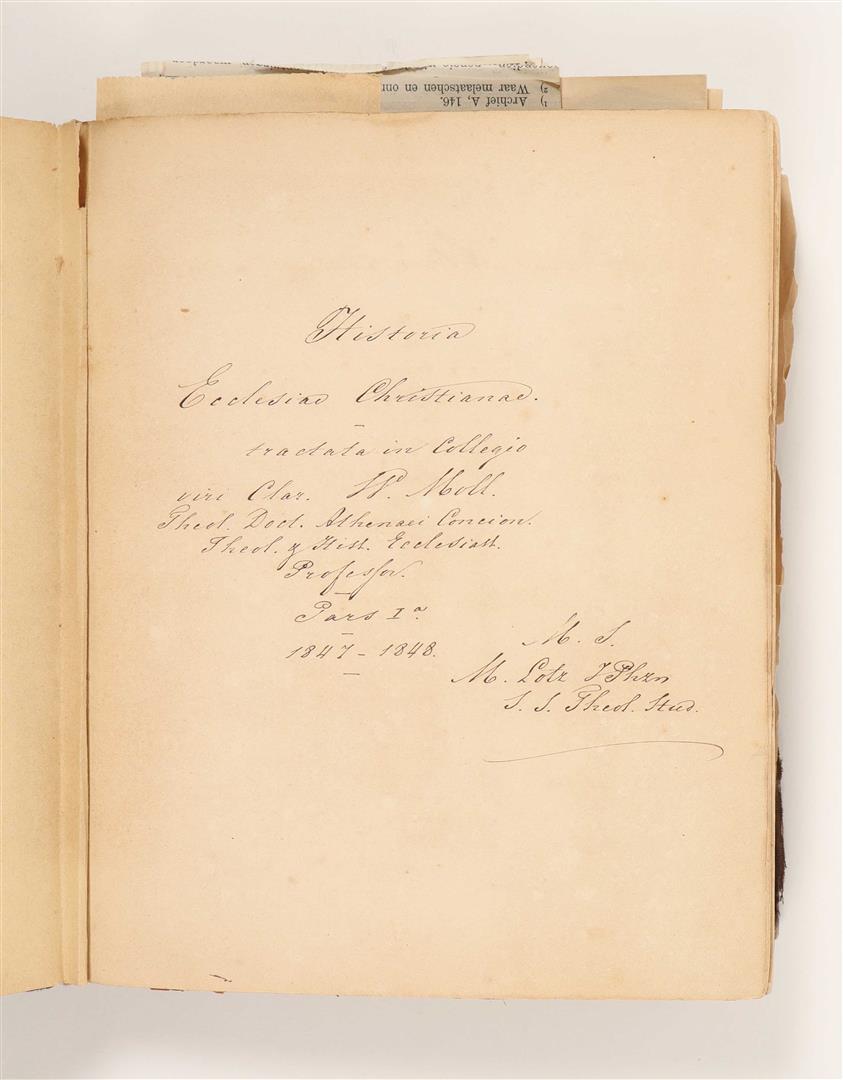 Archief A, 146.
Waar melaatschen en
Historia
Ecclesiae Christianae.
tractata in Collegio
viri Clar. W. Moll.
Theol. Doct. Athenaei Concion.
Theol. & Hist. Ecclesiast.
Professor.
Pars I a.
1847 - 1848.
M. S.
M. Lotz JPhzn
S. S. Theol. Stud.